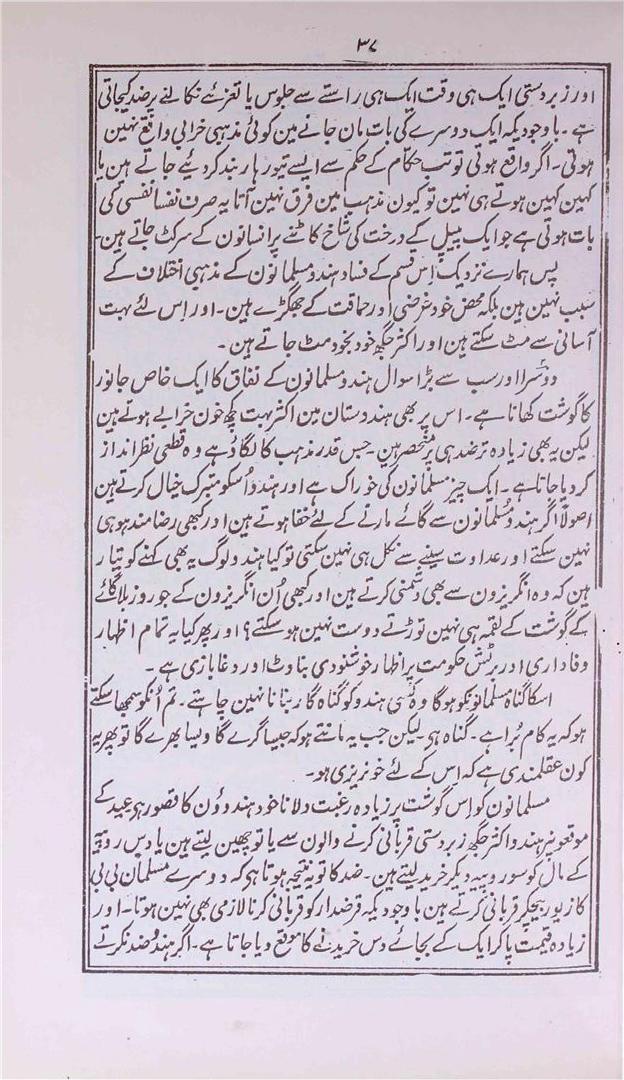 ۳۷
اور زبردستی ایک ہی وقت ایک ہی راستے سے جلوس یا تعزئے نکالنے پر ضد کیجاتی
ہے۔ باوجودیکہ ایک دوسرے کی بات مان جانے مین کوئی مذہبی خرابی واقع نہین
ہوتی۔ اگر واقع ہوتی تو تب حکام کے حکم سے ایسے تیوہار بند کردئیے جاتے ہین یا
کہین کہین ہوتے ہی نہین تو کیون مذہب مین فرق نہین آتا یہ صرف نفسا نفسی کی
بات ہوتی ہے جو ایک پیپل کے درخت کی شاخ کاٹنے پر انسانون کے سرکٹ جاتے ہین۔
پس ہمارے نزدیک اِس قسم کے فساد ہندو مسلمانون کے مذہبی اختلاف کے
سبب نہین ہین بلکہ محض خودغرضی اور حماقت کے جھگڑے ہین۔ اور اِس لئے بہت
آسانی سے مٹ سکتے ہین اور اکثر جگھ خود بخود مٹ جاتے ہین۔
دوسرا اور سب سے بڑا سوال ہندو مسلمانون کے نفاق کا ایک خاص جانور
کا گوشت کھانا ہے۔ اس پر بھی ہندوستان مین اکثر بہت کچھ خون خرابے ہوتے ہین
لیکن یہ بھی زیادہ تر ضد ہی پر منحصر ہین۔ جس قدر مذہب کا لگاؤ ہے وہ قطعی نظر انداز
کردیا جاتا ہے۔ ایک چیز مسلمانون کی خوراک ہے اور ہندو اُسکو متبرک خیال کرتے ہین
اصولاً اگر ہندو مُسلمانون سے گائے مارنے کے لئے خفا ہوتے ہین اور کبھی رضامند ہو ہی
نہین سکتے اور عداوت سینے سے نکل ہی نہین سکتی تو کیا ہندو لوگ یہ بھی کہنے کو تیار
ہین کہ وہ انگریزون سے بھی دشمنی کرتے ہین اور کبھی اُن انگریزون کے جو روز بلا گائے
کے گوشت کے لقمہ ہی نہین توڑتے دوست نہین ہو سکتے؟ اور پھر کیا یہ تمام اظہار
وفاداری اور برٹش حکومت پر اظہار خوشنودی بناوٹ اور دغا بازی ہے۔
اسکا گناہ مسلمانونکو ہوگا وہ کسی ہندو کو گناہ گار بنانا نہین چاہتے۔ تم اُنکو سمجھا سکتے
ہو کہ یہ کام بُرا ہے۔ گناہ ہی لیکن جب یہ مانتے ہو کہ جیسا کرے گا ویسا بھرے گا تو پھر یہ
کون عقلمندی ہے کہ اس کے لئے خونریزی ہو۔
مسلمانون کو اِس گوشت پر زیادہ رغبت دلانا خود ہندوؤن کا قصور ہی عید کے
موقعونپر ہندو اکثر جگھ زبردستی قربانی کرنے والون سے یا تو چھین لیتے ہین یا دس روپیہ
کے مال کو سو روپیہ دیکر خرید لیتے ہین۔ ضد کا تو نتیجہ ہوتا ہی کہ دوسرے مسلمان بی بی
کا زیور بیچکر قربانی کرتے ہین باوجودیکہ قرضدار کو قربانی کرنا لازمی بھی نہین ہوتا۔ اور
زیادہ قیمت پاکر ایک کے بجائے دس خریدنے کا موقع دیا جاتا ہے۔ اگر ہندو ضد نکرتے